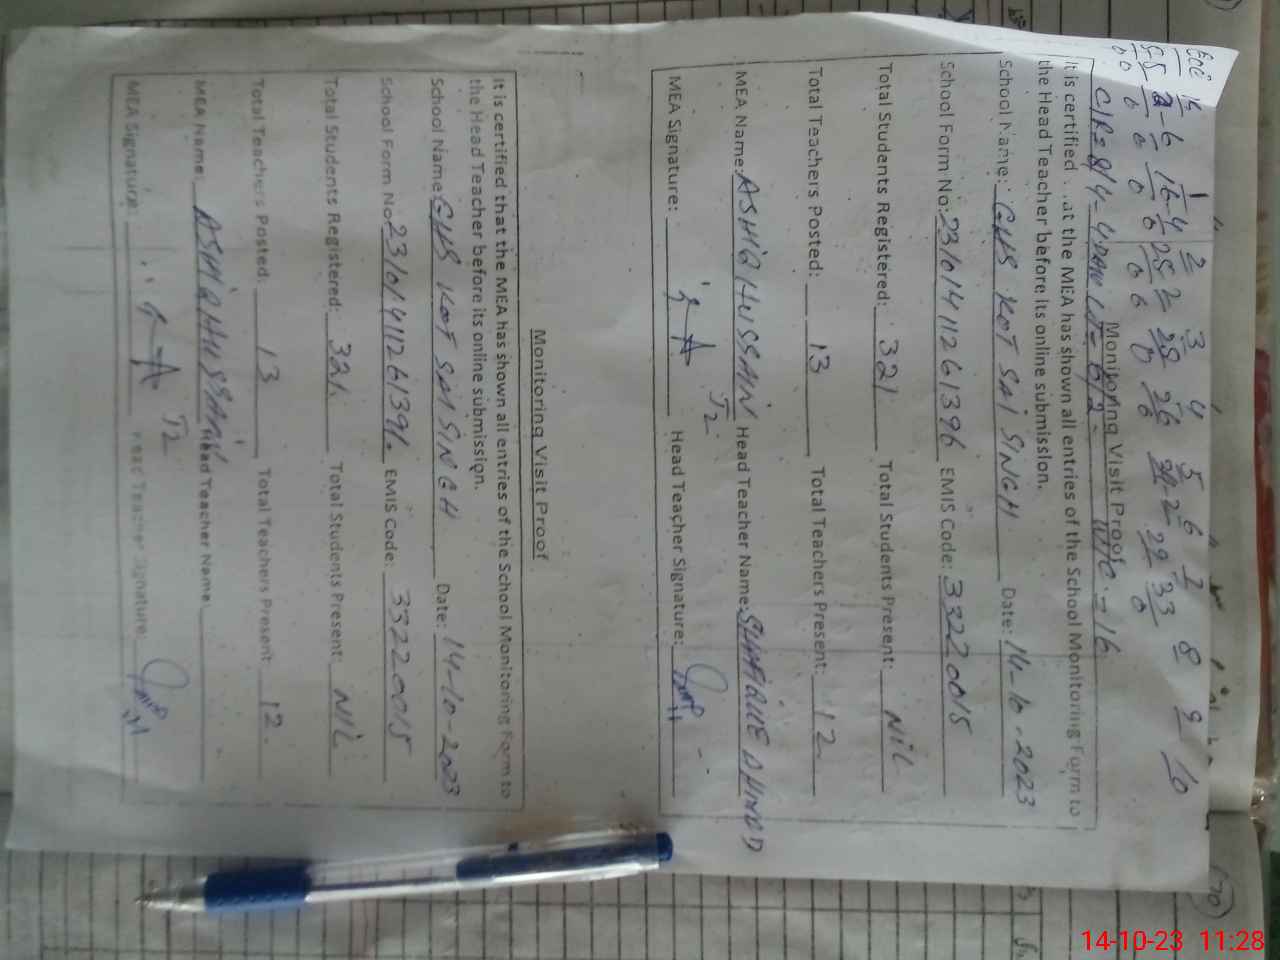 1 2 3 4 5 6 7 8 9 10
Monitoring Visit Proof
It is certified that the MEA has shown all entries of the School Monitoring Form to
the Head Teacher before its online submission.
School Name: GHS KOT SAI SINGH Date: 14-10-2023
School Form No: 2310141126 1396 EMIS Code: 33220015
Total Students Registered: 321 Total Students Present: NiL
Total Teachers Posted: 13 Total Teachers Present: 12
MEA Name: ASHIQ HUSSAIN Head Teacher Name: SHAFIQUE AHMED
MEA Signature: Head Teacher Signature:
Monitoring Visit Proof
It is certified that the MEA has shown all entries of the School Monitoring Form to
the Head Teacher before its online submission.
School Name: GHS KOT SAI SINGH Date: 14-10-2023
School Form No: 2310141126 1396 EMIS Code: 33220015
Total Students Registered: 321 Total Students Present: NIL
Total Teachers Posted: 13 Total Teachers Present 12
MEA Name: ASHIQ HUSSAIN Head Teacher Name:
MEA Signature: Head Teacher Signature
14-10-23 11:28